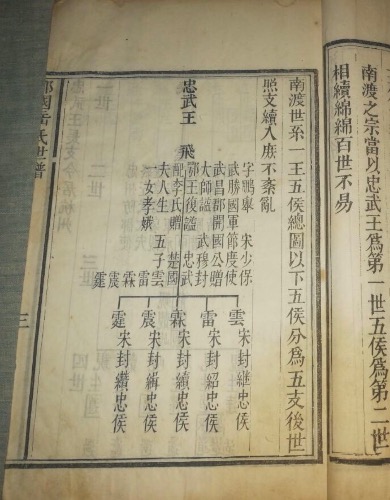 南渡之宗當以忠武王爲第一世五侯爲第二世
相續綿綿百世不易
南渡世系一王五侯總圖以下五侯分爲五支後世
照支續入庶不紊亂
忠武王 飛
字鵬舉 宋少保
武勝國軍節度使
武昌郡開國公贈
大師謚 武穆封
鄂王復謚 忠武
配李氏贈 楚國
夫人生 五子雲
雷霖震霆
女孝娥
雲 宋封繼忠侯
雷 宋封紹忠侯
霖 宋封續忠侯
震 宋封緝忠侯
霆 宋封纘忠侯
岳氏世譜
三